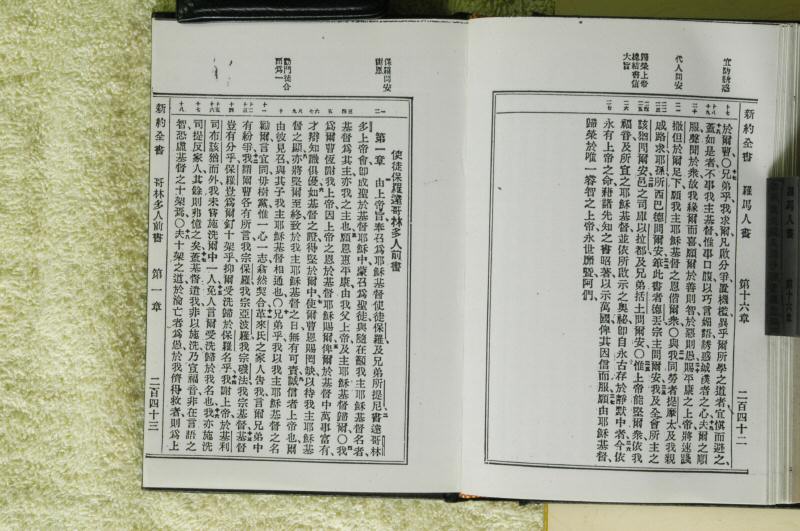 新約全書　羅馬人書　第十六章　二百四十二
宜防誘惑
代人問安
歸榮上帝
總結書信
大旨
於爾曹、○兄弟乎、我求爾、凡啟分爭、置機檻、異乎爾所學之道者、宜愼而避之、
蓋如是者、不事我主基督、惟事口腹、以巧言媚語誘惑誠樸者之心、夫爾之順
服、聲聞於衆、故我緣爾而喜、願爾於善則智、於惡則愚、賜平康之上帝、將速踐
撒但於爾足下、願我主耶穌基督之恩、偕爾衆、○與我同勞者提摩太、及我親
戚路求耶孫所西巴德問爾安、筆此書者德丟、宗主問爾安、我及全會所主之
該猶問爾安、邑之司庫以拉都及兄弟括土問爾安、○惟上帝能堅爾衆、依我
福音、及所宜之耶穌基督、並依所啟示之奧祕、卽自永古存於靜默中者、今依
永有上帝之命、藉諸先知之書昭著、以示萬國、俾其因信而服、願由耶穌基督、
歸榮於唯一睿智之上帝、永世靡曁、阿們、
保羅問安
謝恩
勸門徒合
而爲一
使徒保羅達哥林多人前書
第一章　由上帝旨、奉召爲耶穌基督使徒保羅、及兄弟所提尼、書達哥林
多上帝會、卽成聖於基督耶穌中、蒙召爲聖徒、與隨在籲我主耶穌基督名者、
基督爲其主、亦我之主也、願恩惠平康、由我父上帝、及主耶穌基督歸爾、○我
爲爾曹恆謝我上帝、因上帝之恩、於基督耶穌賜爾、俾爾於基督中萬事富有、
才辯知識俱優、如基督之證、得堅於爾中、使爾曹恩賜罔缺、以待我主耶穌基
督之顯、亦將堅爾至終、致於我主耶穌基督之日、無有可責、誠信者上帝也、爾
由彼見召、與其子我主耶穌基督相通也、○兄弟乎、我以我主耶穌基督之名
勸爾、言宜同、毋樹黨、惟一心一志、翕然契合、革來氏之家人告我、言爾兄弟中
有紛爭、我謂爾曹各有所言、我宗保羅、我宗亞波羅、我宗磯法、我宗基督、基督
豈有分乎、保羅豈爲爾釘十架乎、抑爾受洗歸於保羅名乎、我謝上帝、於基利
司布該猶而外、我未嘗施洗爾中一人、免人言爾受洗歸於我名也、我亦施洗
司提反家人、其餘則弗憶之矣、蓋基督遣我、非以施洗、乃宣福音、非在言語之
智、恐虛基督之十架焉、○夫十架之道、於淪亡者爲愚、於我儕得救者、則爲上
新約全書　哥林多人前書　第一章　二百四十三
羅馬人書　第十六章